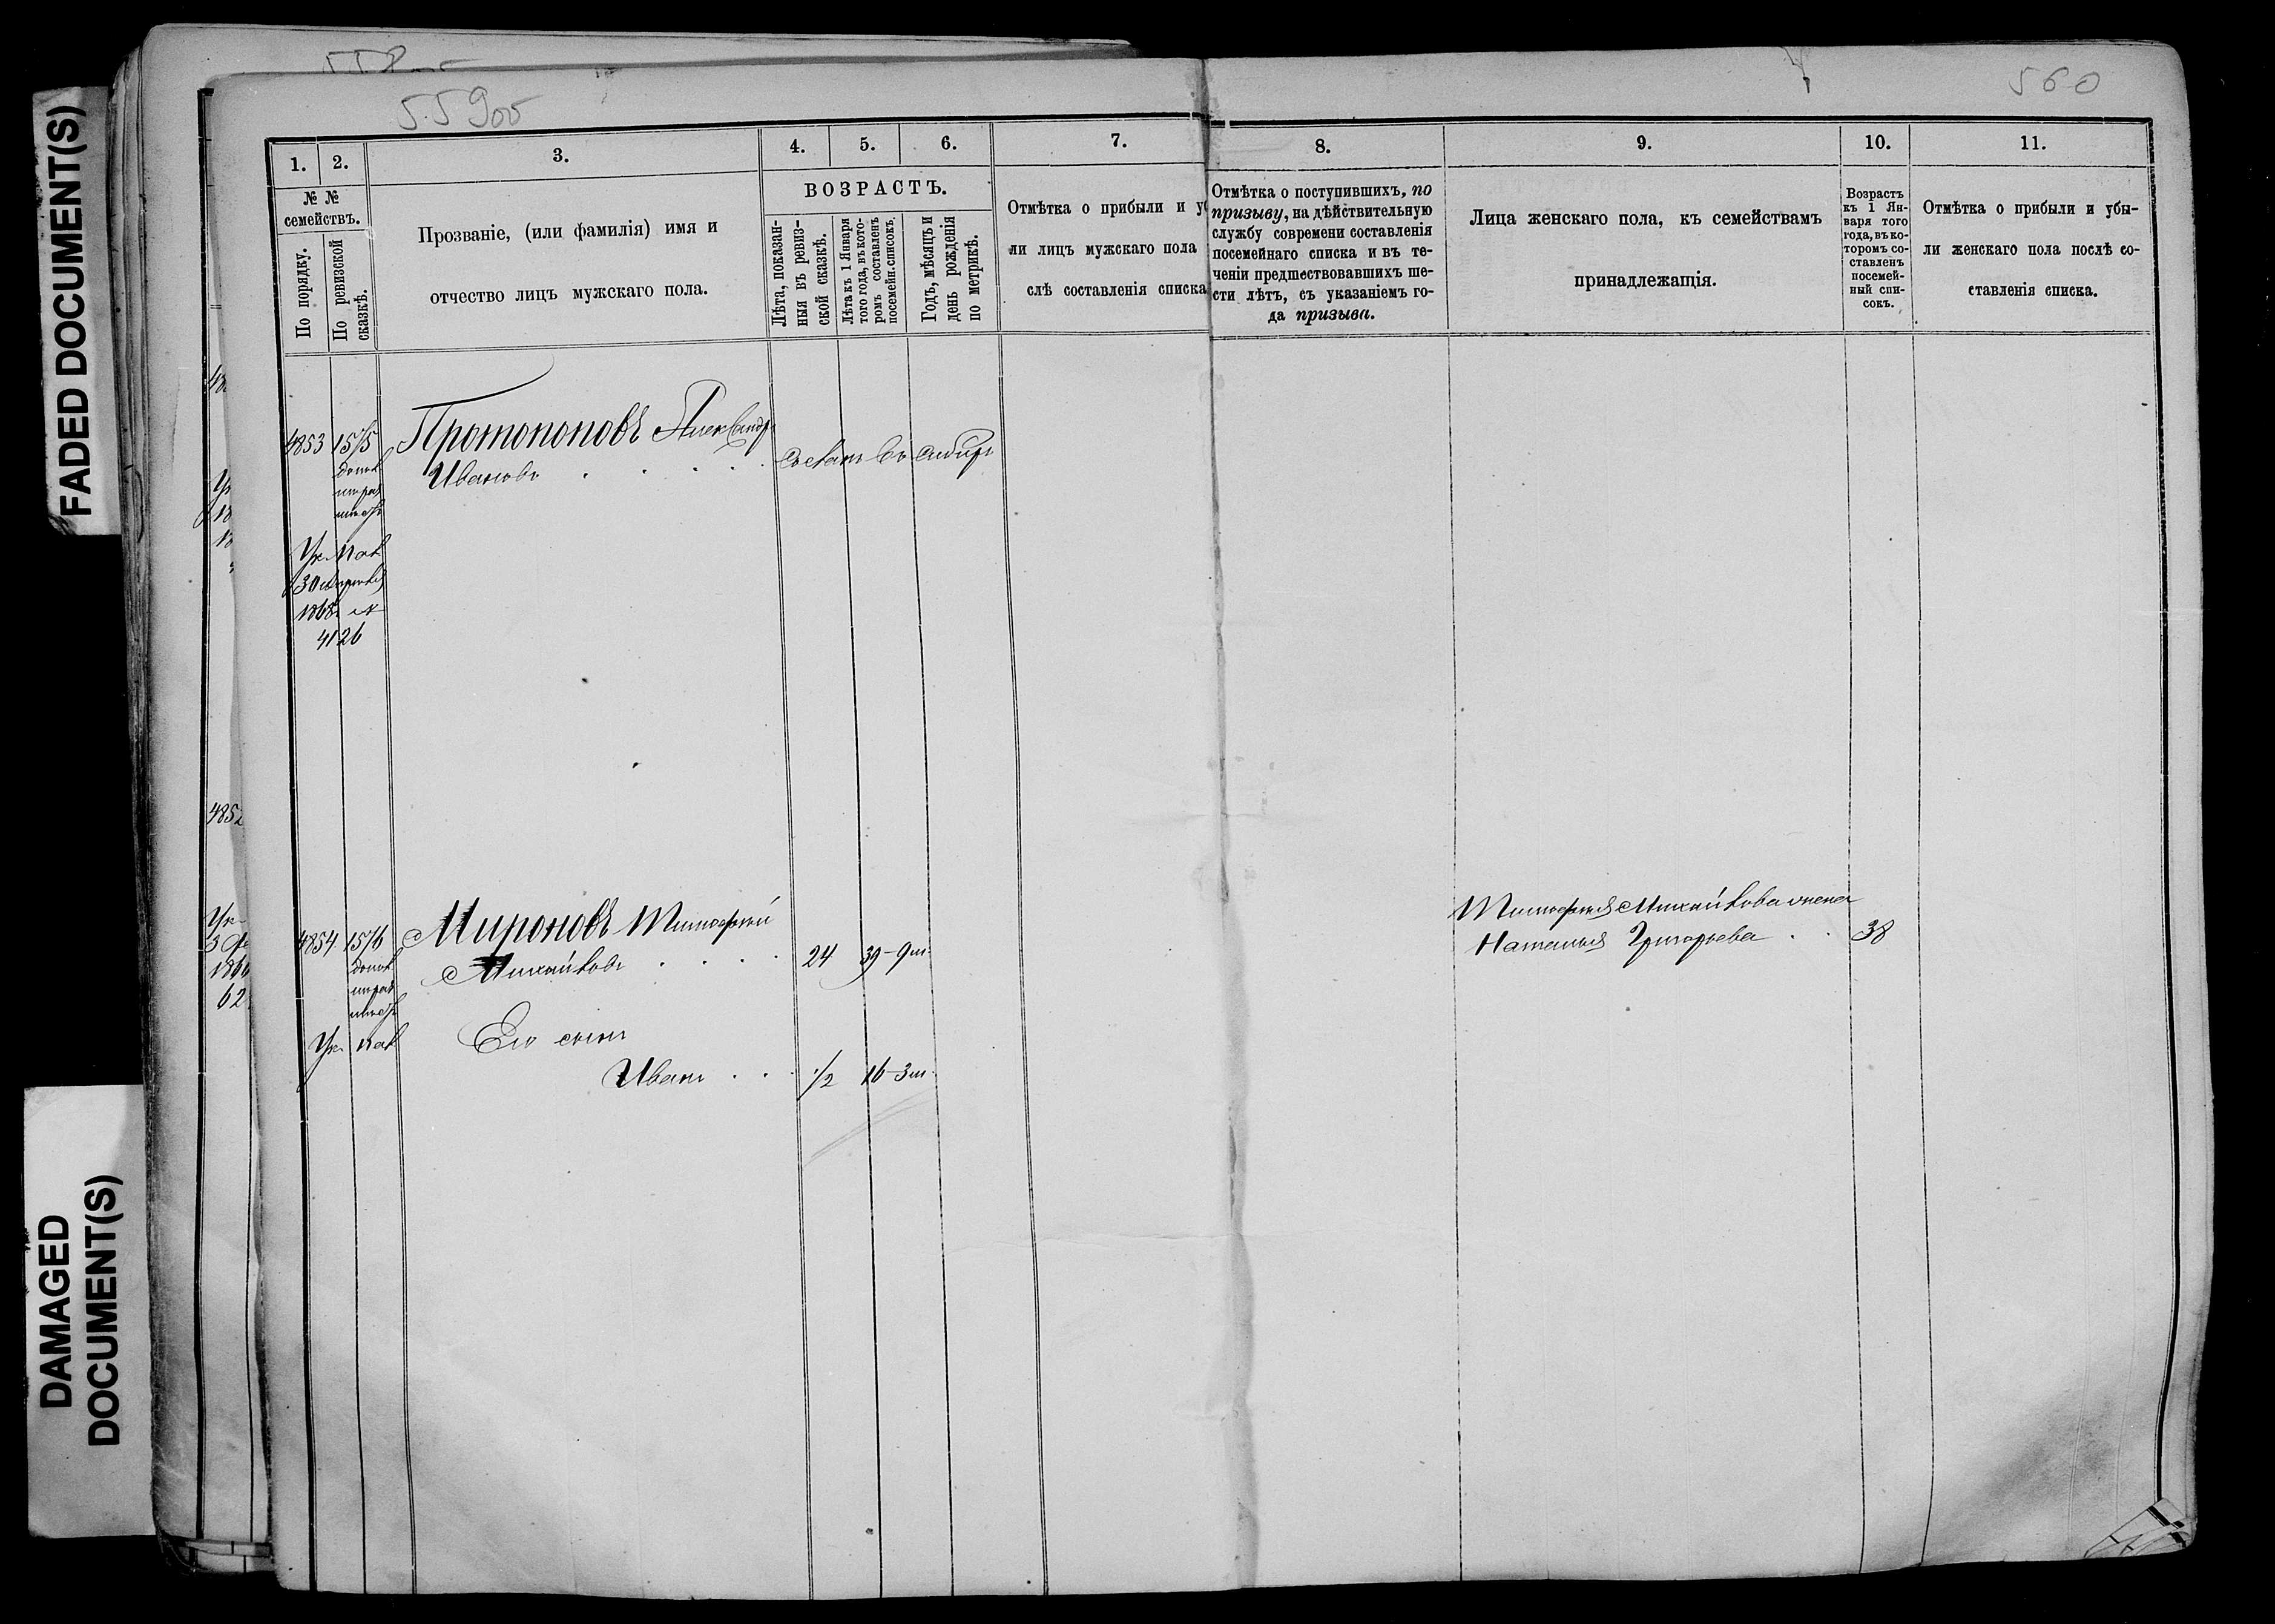 FADED DOCUMENT(S)
DAMAGED
DOCUMENT(S)
559об
560
1.
2.
3.
4.
5.
6.
7.
8.
9.
10.
11.
№ №
семействъ.
По порядку.
По ревизской
сказкѣ.
Прозваніе, (или фамилія) имя и
отчество лицъ мужскаго пола.
ВОЗРАСТЪ.
Лѣта, показан-
ныя въ ревиз-
ской сказкѣ.
Лѣта къ 1 Января
того года, въ кото-
ромъ составленъ
посемейн. списокъ.
Годъ, мѣсяцъ и
день рожденія
по метрикѣ.
Отмѣтка о прибыли и у
ли лицъ мужскаго пола
слѣ составленія списка
Отмѣтка о поступившихъ, по
призыву, на дѣйствительную
службу современи составленія
посемейнаго списка и въ те-
ченіи предшествовавшихъ ше-
сти лѣтъ, съ указаніемъ го-
да призыва.
Лица женскаго пола, къ семействамъ
принадлежащія.
Возрастъ
къ 1 Ян-
варя того
года, въ ко-
торомъ со-
ставленъ
посемей-
ный спи-
сокъ.
Отмѣтка о прибыли и убы-
ли женскаго пола послѣ со-
ставленія списка.
4853 1575 Протопоповъ Александръ
Ивановъ сосланъ въ сибирь
1868
4126
4854 1576 Мироновъ Тимофей
Михайловъ 24 39-9м.
Его сынъ
Иванъ 1/2 16-3м.
Тимофея Михайлова жена
Наталья Григорьева 38
4852
62